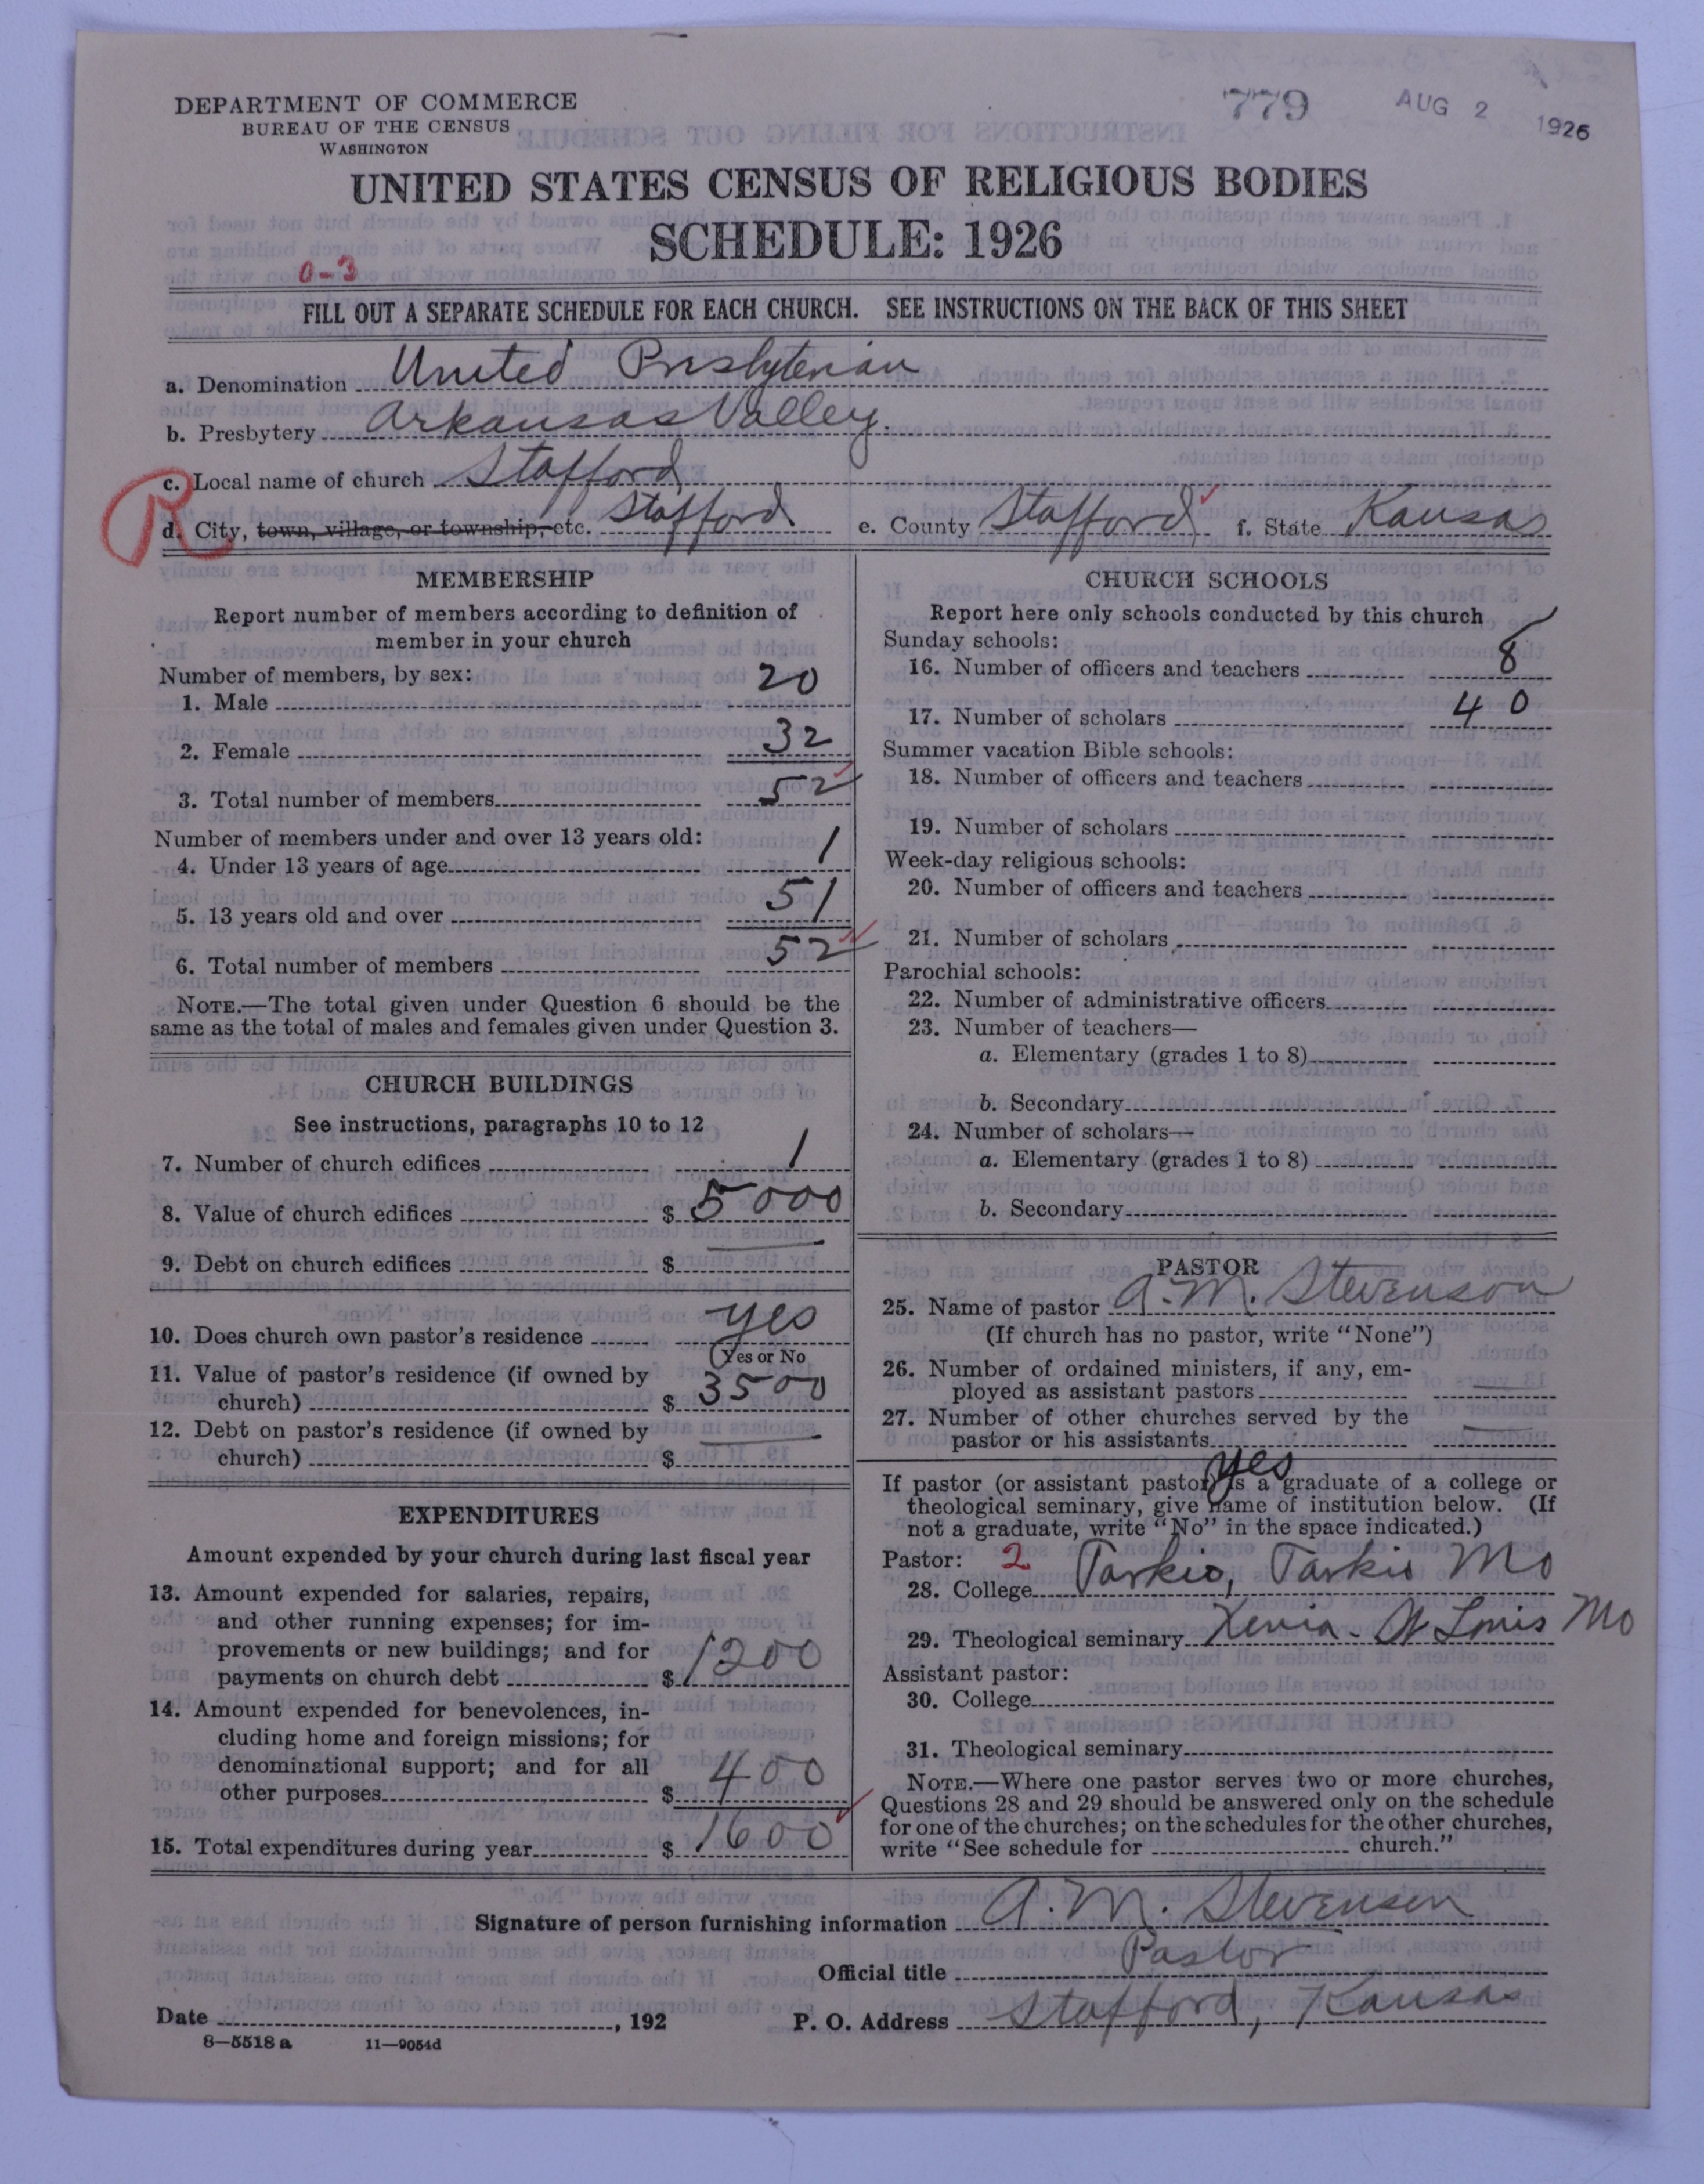 779 AUG 2 1926
DEPARTMENT OF COMMERCE
BUREAU OF THE CENSUS
WASHINGTON
UNITED STATES CENSUS OF RELIGIOUS BODIES
SCHEDULE: 1926
0-3
FILL OUT A SEPARATE SCHEDULE FOR EACH CHURCH. SEE INSTRUCTIONS ON THE BACK OF THIS SHEET
a. Denomination United Presbyterian
b. Presbytery Arkansas Valley.
R
c. Local name of church Stafford
d. City, town, village, or township, etc. Stafford e. County Stafford f. State Kansas
MEMBERSHIP
Report number of members according to definition of
member in your church
Number of members, by sex:
1. Male 20
2. Female 32
3. Total number of members 52
Number of members under and over 13 years old:
4. Under 13 years of age 1
5. 13 years old and over 51
6. Total number of members 52
NOTE.—The total given under Question 6 should be the
same as the total of males and females given under Question 3.
CHURCH BUILDINGS
See instructions, paragraphs 10 to 12
7. Number of church edifices 1
8. Value of church edifices $ 5000
9. Debt on church edifices $ —
10. Does church own pastor's residence yes
(Yes or No
11. Value of pastor's residence (if owned by
church) $ 3500
12. Debt on pastor's residence (if owned by
church) $ —
EXPENDITURES
Amount expended by your church during last fiscal year
13. Amount expended for salaries, repairs,
and other running expenses; for im-
provements or new buildings; and for
payments on church debt $ 1200
14. Amount expended for benevolences, in-
cluding home and foreign missions; for
denominational support; and for all
other purposes $ 400
15. Total expenditures during year $ 1600
CHURCH SCHOOLS
Report here only schools conducted by this church
Sunday schools:
16. Number of officers and teachers 8
17. Number of scholars 40
Summer vacation Bible schools:
18. Number of officers and teachers
19. Number of scholars
Week-day religious schools:
20. Number of officers and teachers
21. Number of scholars
Parochial schools:
22. Number of administrative officers
23. Number of teachers—
a. Elementary (grades 1 to 8)
b. Secondary
24. Number of scholars—
a. Elementary (grades 1 to 8)
b. Secondary
PASTOR
25. Name of pastor A. M. Stevenson
(If church has no pastor, write "None")
26. Number of ordained ministers, if any, em-
ployed as assistant pastors —
27. Number of other churches served by the
pastor or his assistants —
yes
If pastor (or assistant pastor) is a graduate of a college or
theological seminary, give name of institution below. (If
not a graduate, write "No" in the space indicated.)
Pastor: 2
28. College Tarkio, Tarkio Mo
29. Theological seminary Xenia - St Louis Mo
Assistant pastor:
30. College
31. Theological seminary
NOTE.—Where one pastor serves two or more churches,
Questions 28 and 29 should be answered only on the schedule
for one of the churches; on the schedules for the other churches,
write "See schedule for church."
Signature of person furnishing information A. M. Stevenson
Official title Pastor
Date , 192 P. O. Address Stafford, Kansas
8—5518 a 11—9054d